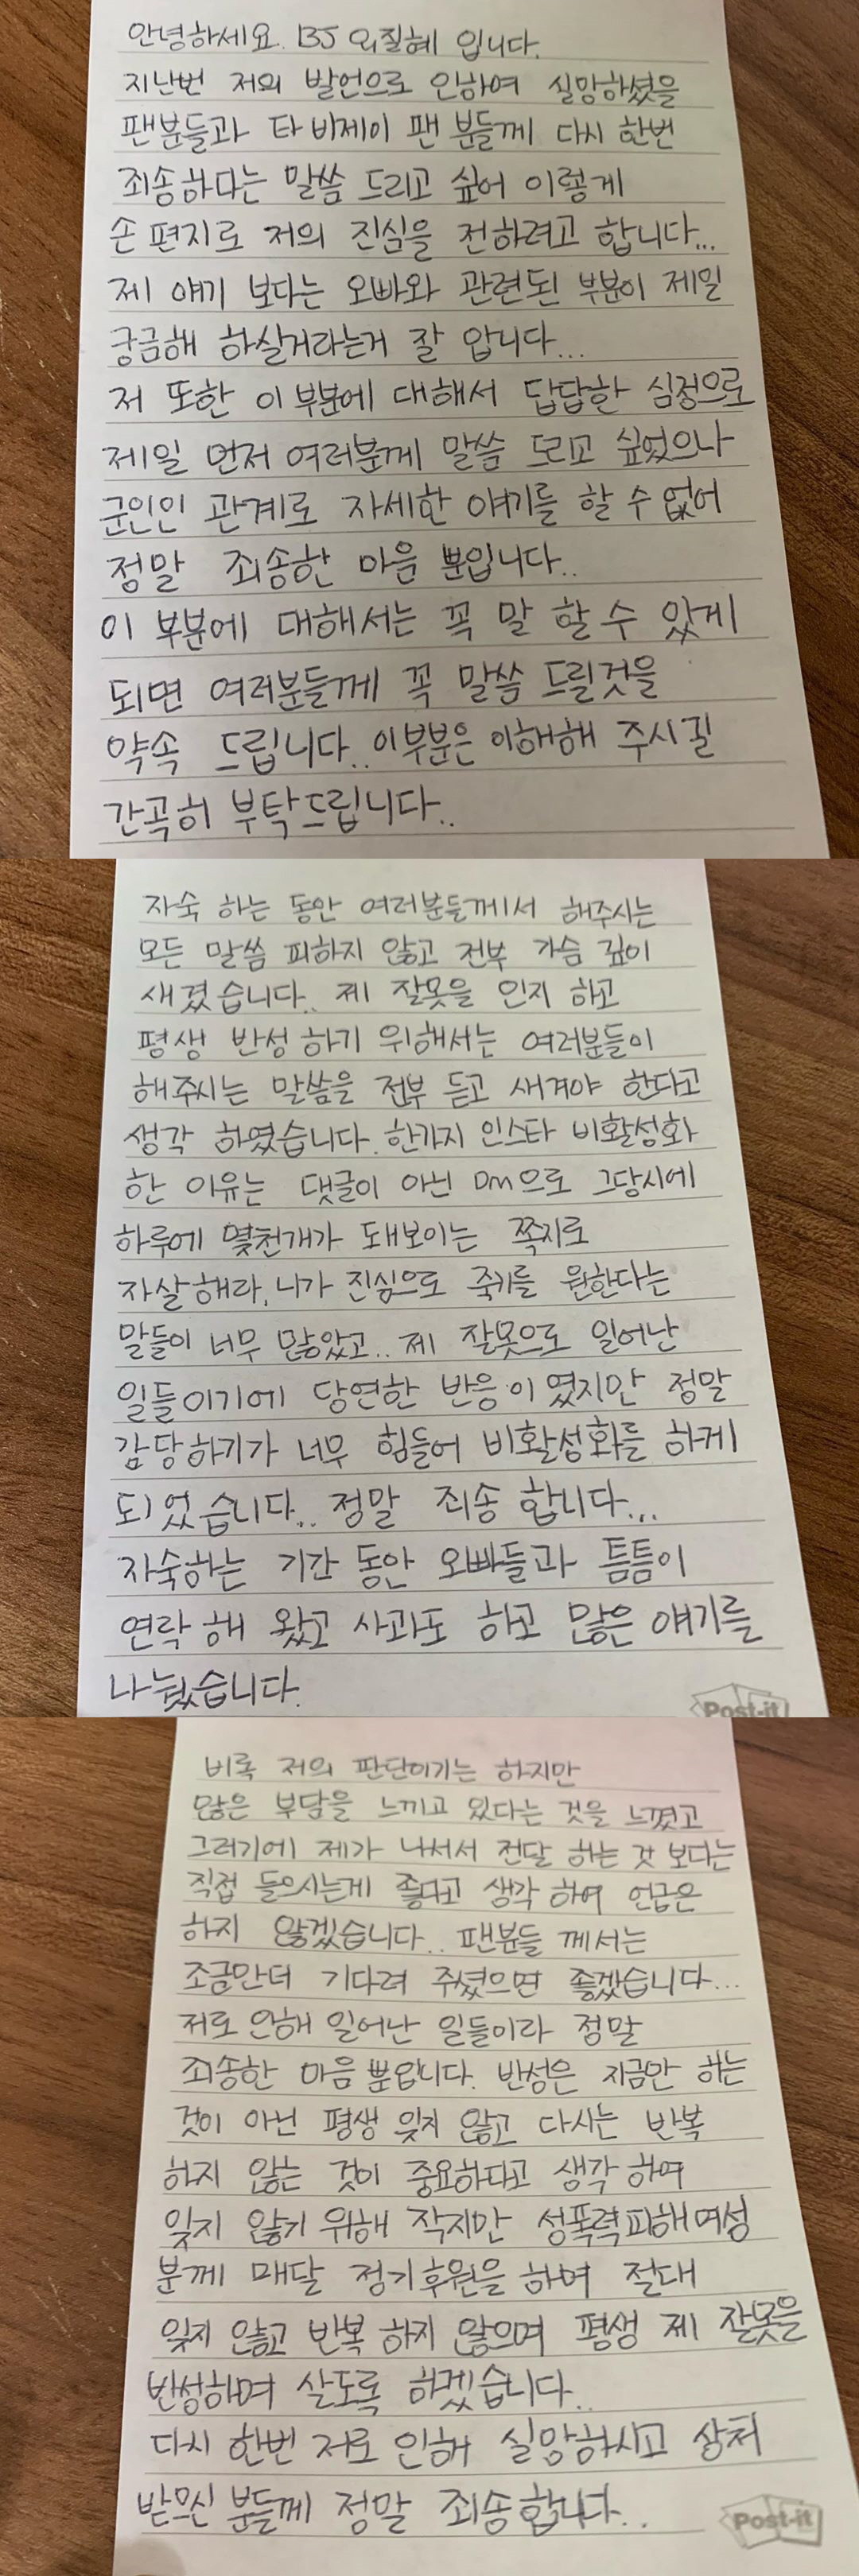 안녕하세요. BJ 외질혜 입니다.
지난번 저의 발언으로 인하여 실망하셨을
팬분들과 타 비제이 팬 분들께 다시 한번
죄송하다는 말씀 드리고 싶어 이렇게
손 편지로 저의 진심을 전하려고 합니다...
제 얘기 보다는 오빠와 관련된 부분이 제일
궁금해 하실거라는거 잘 압니다...
저 또한 이 부분에 대해서 답답한 심정으로
제일 먼저 여러분께 말씀 드리고 싶었으나
군인인 관계로 자세한 얘기를 할 수 없어
정말 죄송한 마음 뿐입니다..
이 부분에 대해서는 꼭 말 할 수 있게
되면 여러분들께 꼭 말씀 드릴것을
약속 드립니다.. 이부분은 이해해 주시길
간곡히 부탁드립니다..
자숙 하는 동안 여러분들께서 해주시는
모든 말씀 피하지 않고 전부 가슴 깊이
새겼습니다.. 제 잘못을 인지 하고
평생 반성 하기 위해서는 여러분들이
해주시는 말씀을 전부 듣고 새겨야 한다고
생각 하였습니다. 한가지 인스타 비활성화
한 이유는 댓글이 아닌 DM으로 그당시에
하루에 몇천개가 돼보이는 쪽지로
자살해라, 니가 진심으로 죽기를 원한다는
말들이 너무 많았고.. 제 잘못으로 일어난
일들이기에 당연한 반응이였지만 정말
감당하기가 너무 힘들어 비활성화를 하게
되었습니다.. 정말 죄송 합니다...
자숙하는 기간 동안 오빠들과 틈틈이
연락 해 왔고 사과도 하고 많은 얘기를
나눴습니다.
Post-it
비록 저의 판단이기는 하지만
많은 부담을 느끼고 있다는 것을 느꼈고
그러기에 제가 나서서 전달 하는 것 보다는
직접 들으시는게 좋다고 생각 하여 언급은
하지 않겠습니다.. 팬분들 께서는
조금만더 기다려 주셨으면 좋겠습니다...
저로 인해 일어난 일들이라 정말
죄송한 마음 뿐입니다. 반성은 지금만 하는
것이 아닌 평생 잊지 않고 다시는 반복
하지 않는 것이 중요하다고 생각 하여
잊지 않기 위해 작지만 성폭력피해여성
분께 매달 정기후원을 하며 절대
잊지 않고 반복 하지 않으며 평생 제 잘못을
반성하며 살도록 하겠습니다..
다시 한번 저로 인해 실망하시고 상처
받으신 분들께 정말 죄송합니다..
Post-it